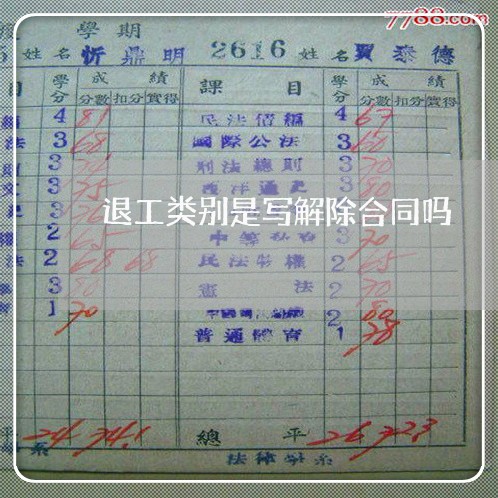 7788.com
學期
5 姓名 忻鼎明 2616 姓名 賈泰德
目 學分 成績 課目 學分 成績
分數 扣分 實得 分數 扣分 實得
4 81 民法債編 4 67
法 3 68 國際公法 3 60
3 刑法總則 3 70
3 75 西洋通史 3 80
退工类别是写解除合同吗
2 65 3 70
法 2 68 68 民法物權 2 65
3 80 憲法 2 70
1 70 2 80
普通體育 1 78
平 24 74.1 總平 26 72.3
系 法律學系